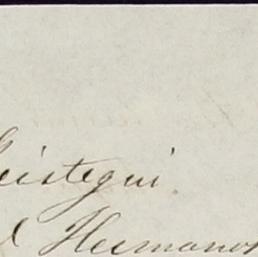 eistegui
l Hermanos